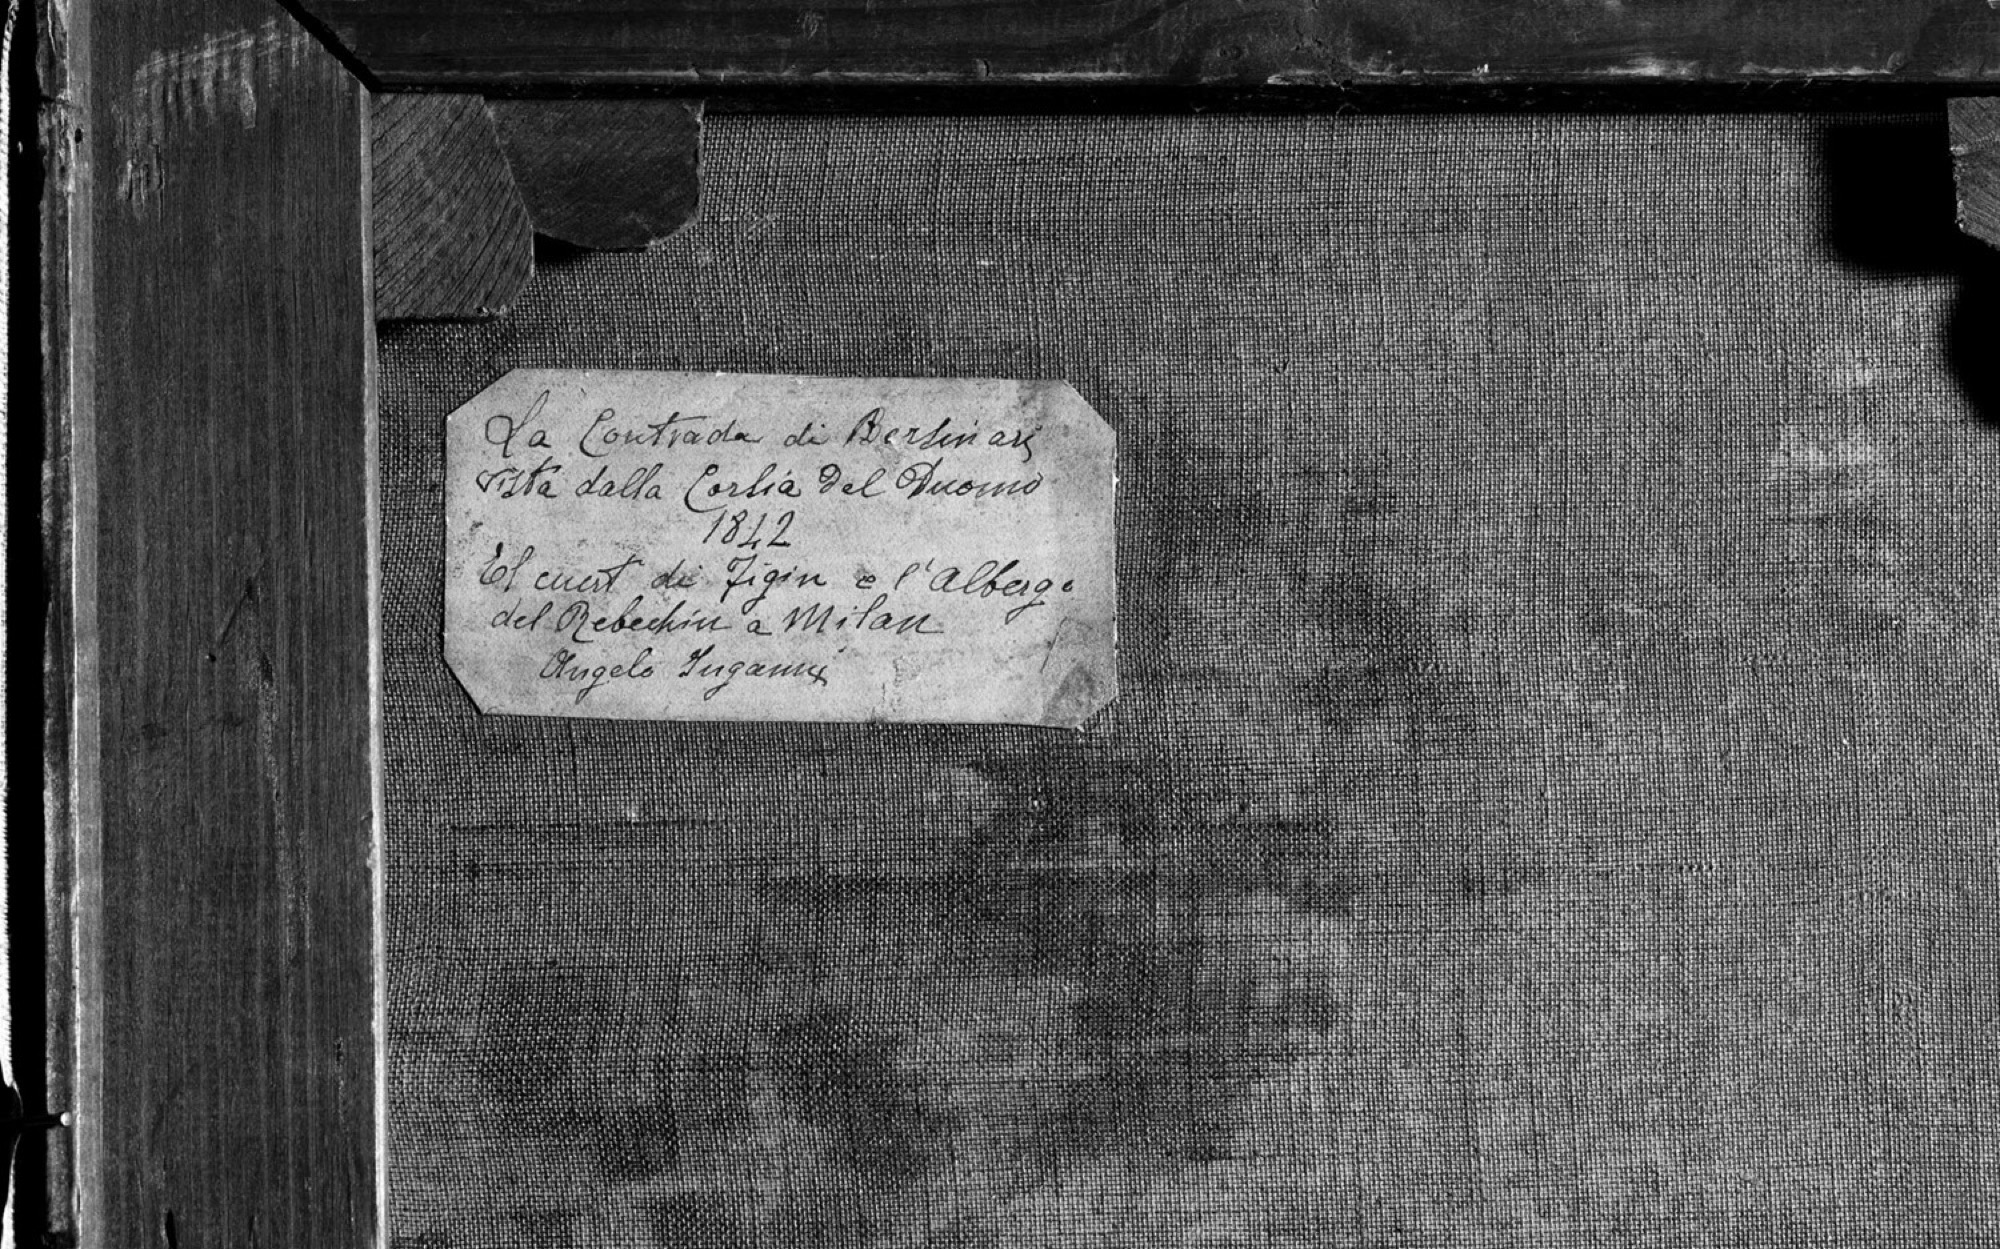 La Contrada di Bersinari
vista dalla Corsia del Duomo
1842
El cuert di Figin e l'Albergo
del Rebechin a Milan
Angelo Inganni